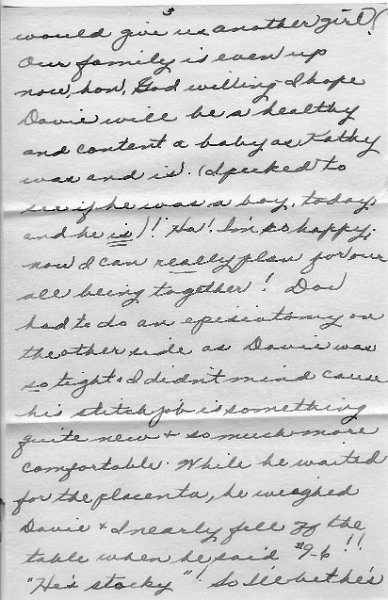 3
would give us another girl!
Our family is even up
now, hon, God willing I hope
Davie will be a healthy
and content a baby as Kathy
was and is. (I peeked to
see if he was a boy, today,
and he is)! Ha! I'm so happy,
now I can really plan for our
all being together! Doc
had to do an episiotomy on
the other side as Davie was
so tight & I didn't mind cause
his stitch job is something
quite new & so much more
comfortable. While he waited
for the placenta, he weighed
Davie & I nearly fell off the
table when he said #9-6!!
"He's stocky"! So I'll bet he's